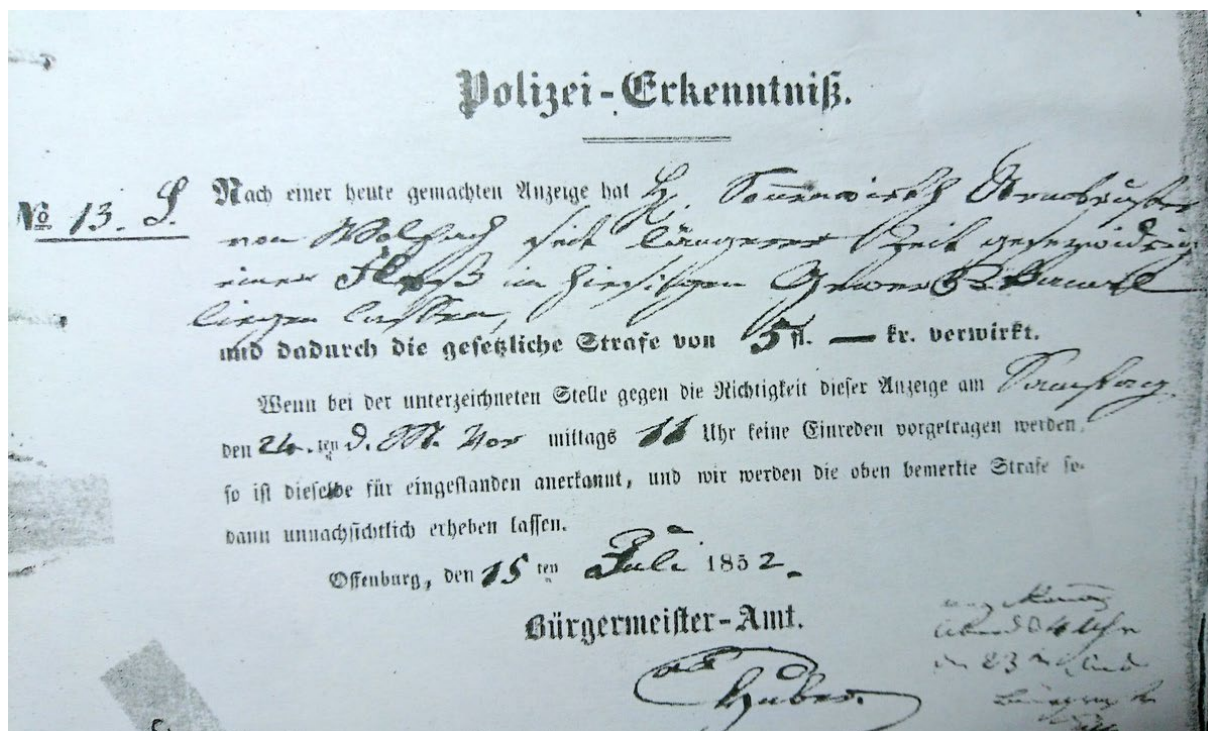 Polizei-Erkenntniß.
№ 13. S.
Nach einer heute gemachten Anzeige hat H. Sonnenwirth Armbruster
von Wolfach seit längerer Zeit gesetzwidrig
einen Floß im hiesigen Gewerbskanal
liegen lassen,
und dadurch die gesetzliche Strafe von 5 fl. — kr. verwirkt.
Wenn bei der unterzeichneten Stelle gegen die Richtigkeit dieser Anzeige am Samstag
den 24.ten d. M. Vor mittags 11 Uhr keine Einreden vorgetragen werden,
so ist dieselbe für eingestanden anerkannt, und wir werden die oben bemerkte Strafe so-
dann unnachsichtlich erheben lassen.
Offenburg, den 15ten Juli 1852.
Bürgermeister-Amt.
Abends 4 Uhr
23